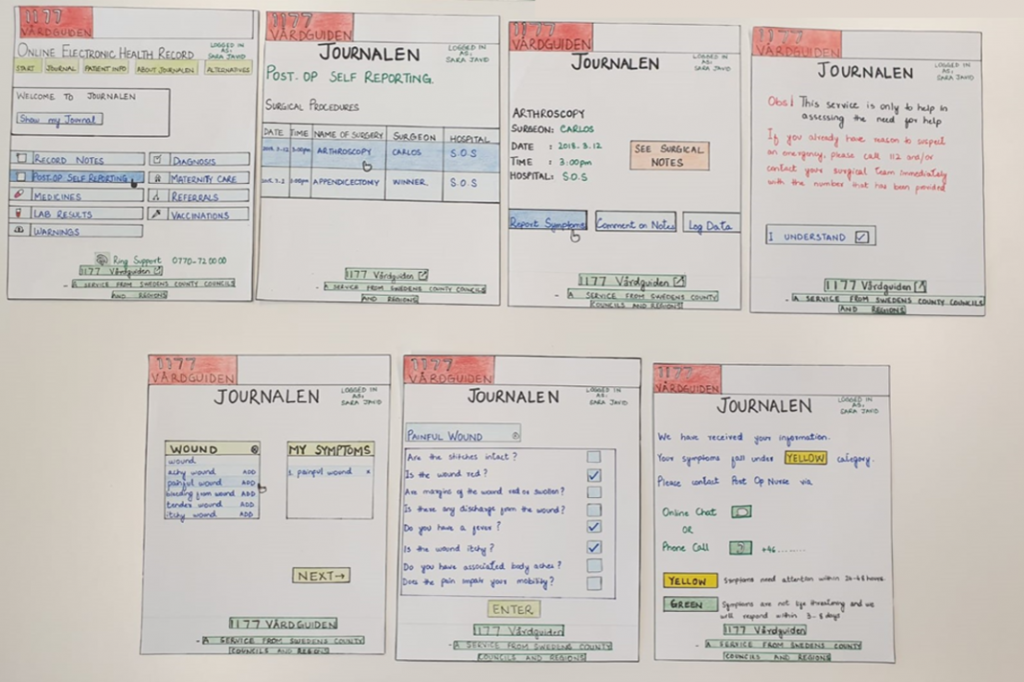 1177
VÅRDGUIDEN
ONLINE ELECTRONIC HEALTH RECORD
LOGGED IN
AS:
SARA JAVID
START
JOURNAL
PATIENT INFO
ABOUT JOURNALEN
ALTERNATIVES
WELCOME TO JOURNALEN
Show my Journal
RECORD NOTES
DIAGNOSIS
POST-OP SELF REPORTING
MATERNITY CARE
MEDICINES
REFERRALS
LAB RESULTS
VACCINATIONS
WARNINGS
Ring Support 0770-72 00 00
1177 Vårdguiden
- A SERVICE FROM SWEDENS COUNTY COUNCILS
AND REGIONS
1177
VÅRDGUIDEN
JOURNALEN
LOGGED IN
AS:
SARA JAVID
POST-OP SELF REPORTING
SURGICAL PROCEDURES
DATE TIME NAME OF SURGERY SURGEON HOSPITAL
3.00pm ARTHROSCOPY CARLOS S.O.S
APPENDICECTOMY WINNER S.O.S
1177 Vårdguiden
- A SERVICE FROM SWEDENS COUNTY COUNCILS
AND REGIONS
1177
VÅRDGUIDEN
JOURNALEN
LOGGED IN
AS:
SARA JAVID
ARTHROSCOPY
SURGEON: CARLOS
DATE : 2018.3.12
TIME : 3.00pm
HOSPITAL: S.O.S
SEE SURGICAL
NOTES
Report Symptoms
Comment on Notes
Log Data
1177 Vårdguiden
- A SERVICE FROM SWEDENS COUNTY
COUNCILS AND REGIONS
1177
VÅRDGUIDEN
JOURNALEN
LOGGED IN
AS:
SARA JAVID
Obs! This service is only to help in
assessing the need for help
If you already have reason to suspect
an emergency, please call 112 and/or
contact your surgical team immediately
with the number that has been provided
I UNDERSTAND
1177 Vårdguiden
- A SERVICE FROM SWEDENS COUNTY COUNCILS
AND REGIONS
1177
VÅRDGUIDEN
JOURNALEN
LOGGED IN
AS:
SARA JAVID
WOUND
wound
achy wound ADD
painful wound ADD
bleeding from wound ADD
tender wound ADD
itchy wound ADD
MY SYMPTOMS
1. painful wound x
NEXT→
1177 VÅRDGUIDEN
- A SERVICE FROM SWEDENS COUNTY
COUNCILS AND REGIONS
1177
VÅRDGUIDEN
JOURNALEN
LOGGED IN
AS:
SARA JAVID
PAINFUL WOUND
Are the stitches intact?
Is the wound red?
Are margins of the wound red or swollen?
Is there any discharge from the wound?
Do you have a fever?
Is the wound itchy?
Do you have associated body aches?
Does the pain impair your mobility?
ENTER
1177 Vårdguiden
- A SERVICE FROM SWEDENS COUNTY
COUNCILS AND REGIONS
1177
VÅRDGUIDEN
JOURNALEN
LOGGED IN
AS:
SARA JAVID
We have received your information.
Your symptoms fall under YELLOW category.
Please contact Post Op Nurse via
Online Chat
OR
Phone Call +46........
YELLOW Symptoms need attention within 24-48 hours.
GREEN Symptoms are not life threatening and we
will respond within 3-8 days
1177 Vårdguiden
- A SERVICE FROM SWEDENS COUNTY
COUNCILS AND REGIONS